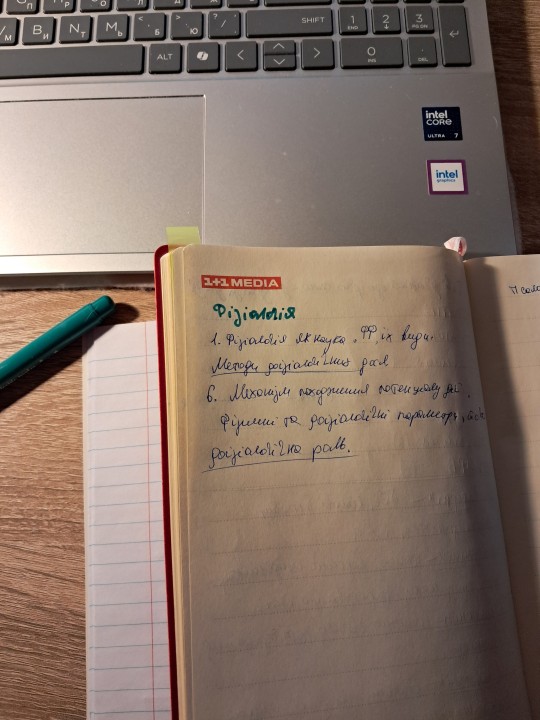 SHIFT
1 END
2 ↓
3 PG DN
ALT
<
>
0 INS
. DEL
М И Т Ь Б Ю /
intel CORE ULTRA 7
intel graphics
1+1 MEDIA
Фізіологія
1. Фізіологія як наука. ФФ, їх види.
Методи фізіологічних досл
6. Механізм походження потенціалу дії,
Фізичні та фізіологічні параметри,
фізіологічна роль.